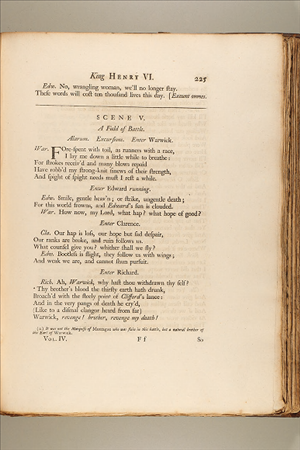 King HENRY VI. 225
Edw. No, wrangling woman, we'll no longer stay.
These words will cost ten thousand lives this day. [Exeunt omnes.
SCENE V.
A Field of Battle.
Allarum. Excursions. Enter Warwick.
War. FOre-spent with toil, as runners with a race,
I lay me down a little while to breathe:
For strokes receiv'd and many blows repaid
Have robb'd my strong-knit sinews of their strength,
And spight of spight needs must I rest a while.
Enter Edward running.
Edw. Smile, gentle heav'n; or strike, ungentle death;
For this world frowns, and Edward's sun is clouded.
War. How now, my Lord, what hap? what hope of good?
Enter Clarence.
Cla. Our hap is loss, our hope but sad despair,
Our ranks are broke, and ruin follows us.
What counsel give you? whither shall we fly?
Edw. Bootless is flight, they follow us with wings;
And weak we are, and cannot shun pursuit.
Enter Richard.
Rich. Ah, Warwick, why hast thou withdrawn thy self?
Thy brother's blood the thirsty earth hath drunk,
Broach'd with the steely point of Clifford's lance:
And in the very pangs of death he cry'd,
(Like to a dismal clangor heard from far)
Warwick, revenge! brother, revenge my death!
It was not the Marquess of Montague who was slain in this battle, but a natural brother of
the Earl of Warwick.
VOL. IV. F f So